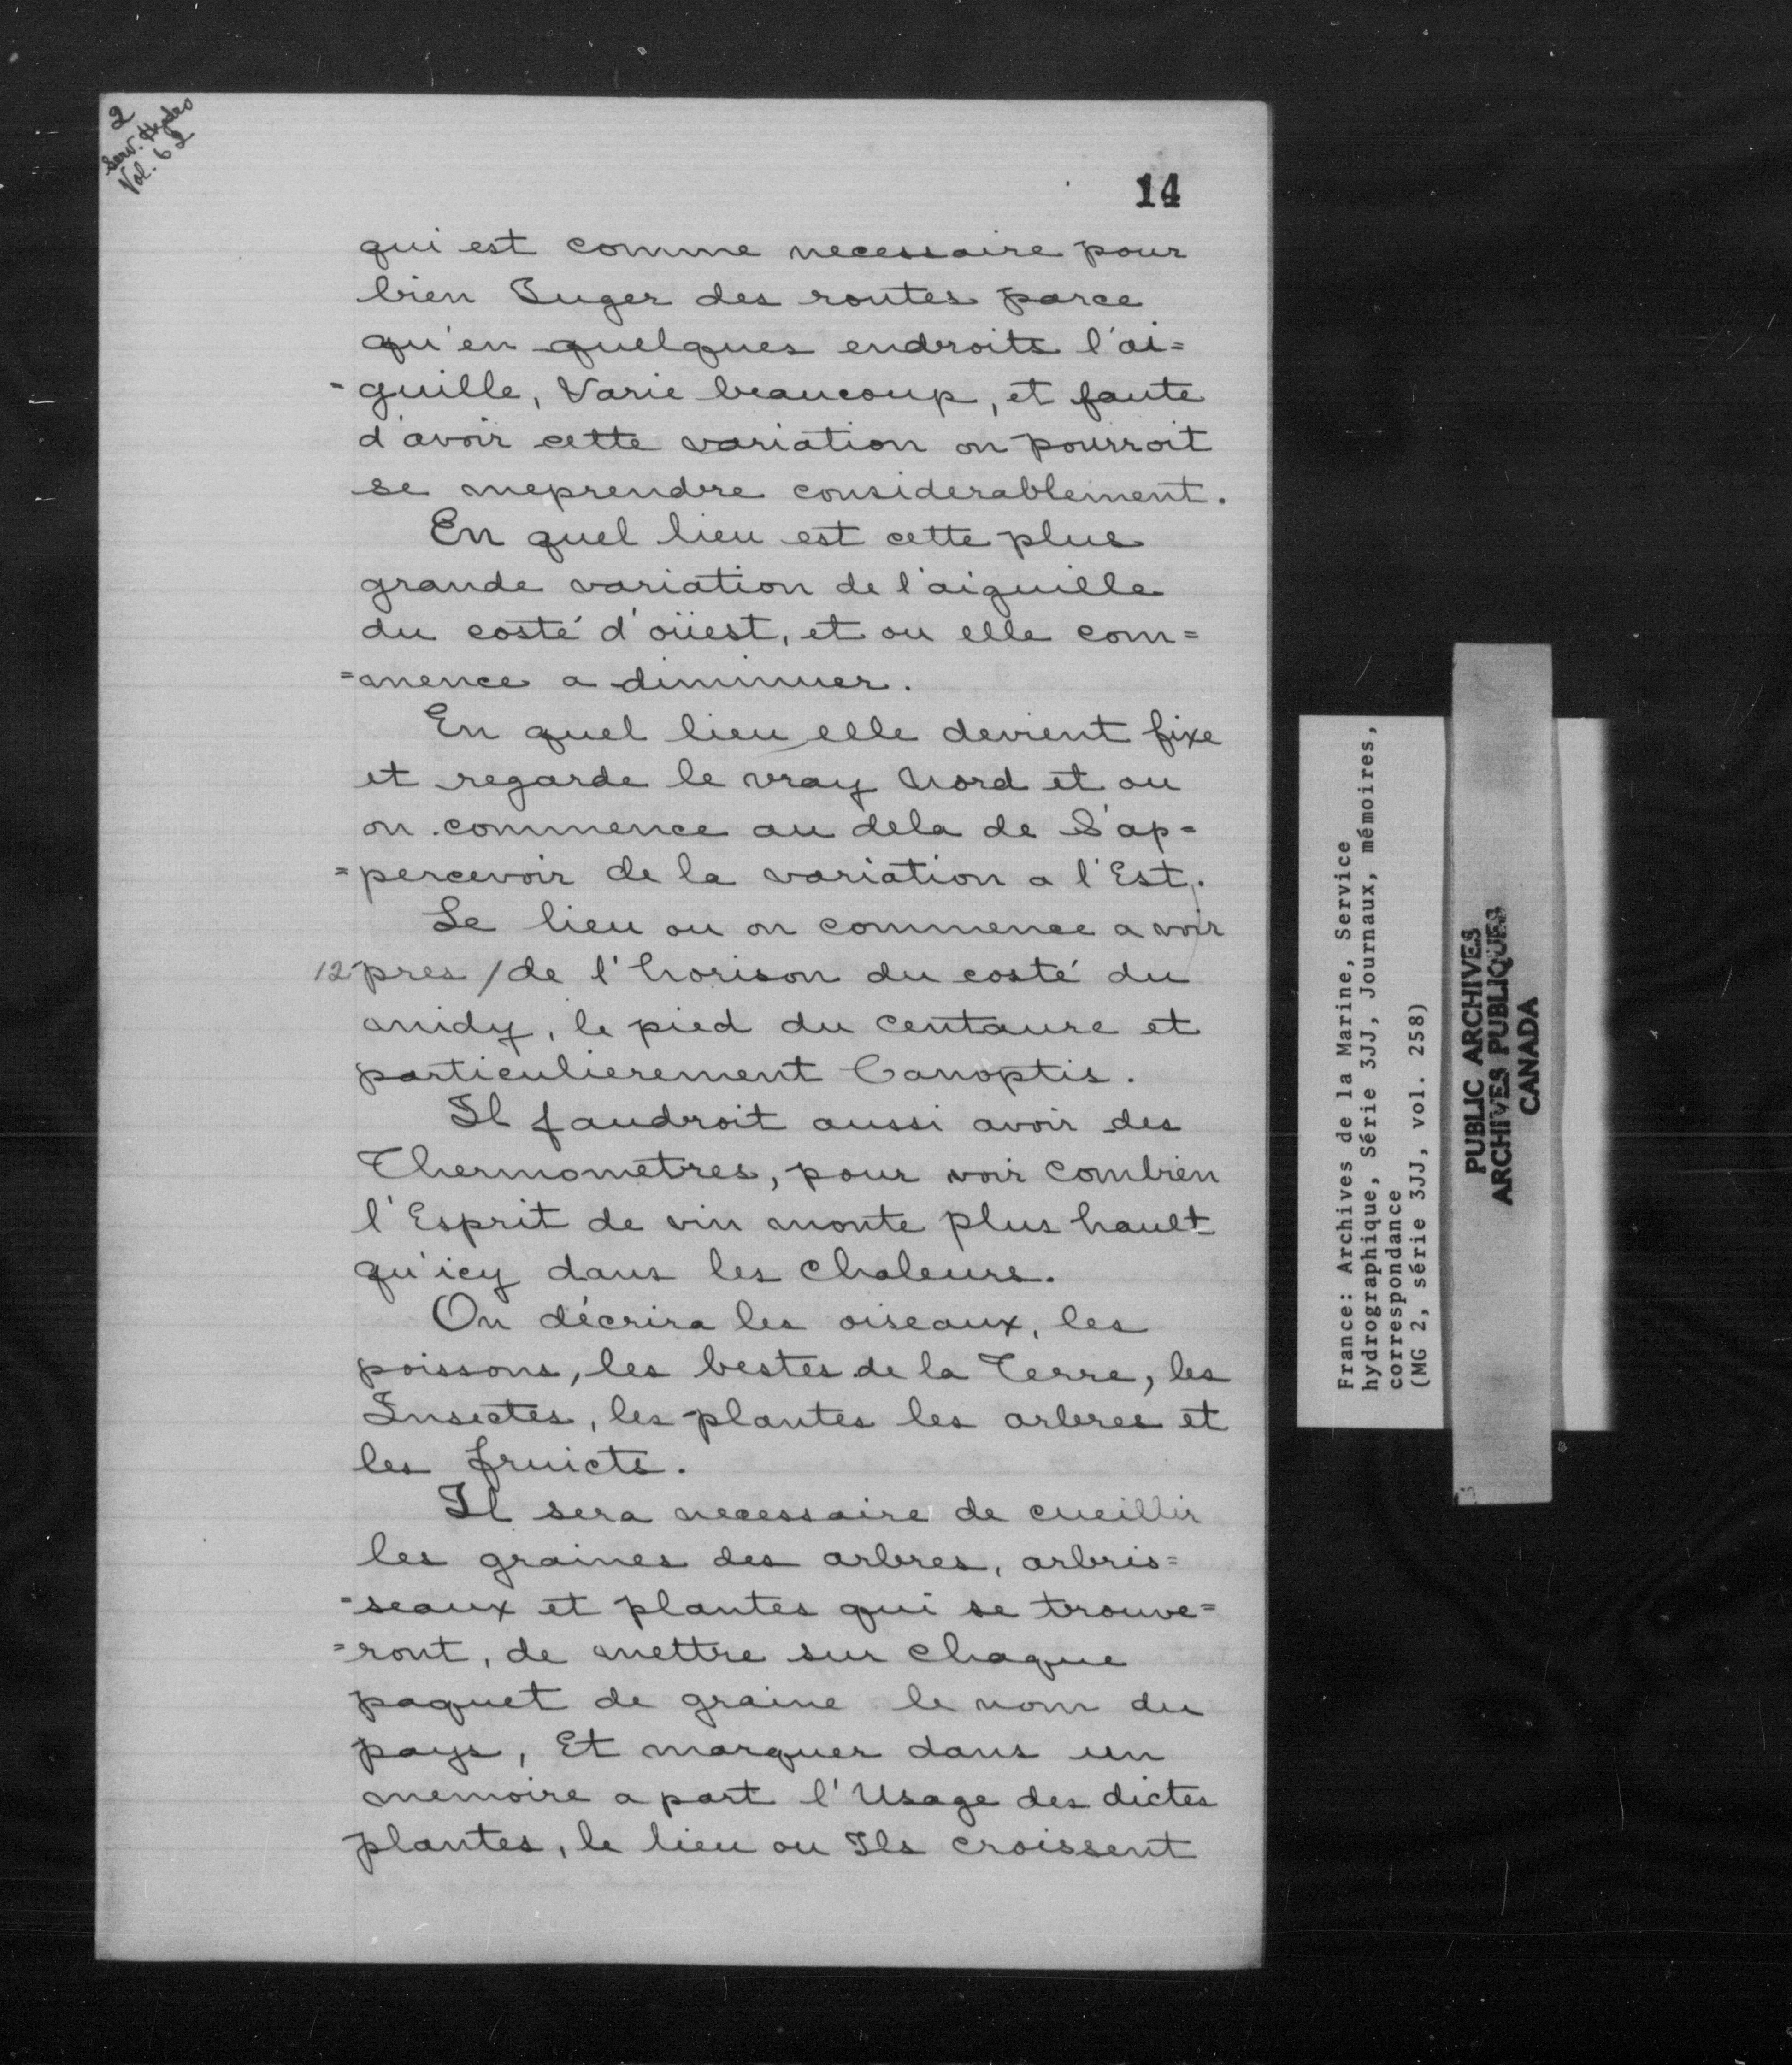 2
Serv. Hydro
Vol. 62
14
qui est comme necessaire pour
bien Juger des routes parce
qu'en quelques endroits l'ai=
-guille, Varie beaucoup, et faute
d'avoir cette variation on pourroit
se meprendre considerablement.
En quel lieu est cette plus
grande variation de l'aiguille
du costé d'oüest, et ou elle com=
=mence a diminuer.
En quel lieu elle devient fixe
et regarde le vray Nord et ou
on commence au dela de S'ap=
=percevoir de la variation a l'Est.
Le lieu ou on commence a voir
12 pres / de l'horison du costé du
midy, le pied du Centaure et
particulierement Canoptis.
Il faudroit aussi avoir des
Thermometres, pour voir combien
l'Esprit de vin monte plus hault
qu'icy dans les chaleurs.
On décrira les oiseaux, les
poissons, les bestes de la Terre, les
Insectes, les plantes les arbres et
les fruicts.
Il sera necessaire de cueillir
les graines des arbres, arbris=
-seaux et plantes qui se trouve=
=ront, de mettre sur chaque
paquet de graine le nom du
pays, Et marquer dans un
memoire a part l'Usage des dictes
plantes, le lieu ou Ils croissent
France: Archives de la Marine, Service
hydrographique, Série 3JJ, Journaux, mémoires,
correspondance
(MG 2, série 3JJ, vol. 258)
PUBLIC ARCHIVES
ARCHIVES PUBLIQUES
CANADA